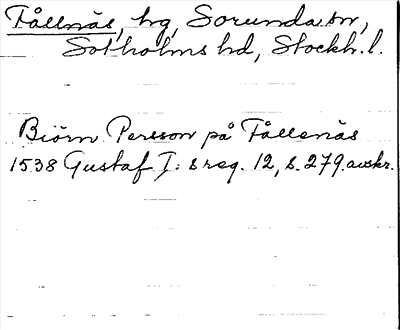 Fållnäs, hg, Sorunda sn,
Sotholms hd, Stockh. l.
Biörn Persson på Fållenäs
1538 Gustaf I:s reg. 12, s. 279. avskr.